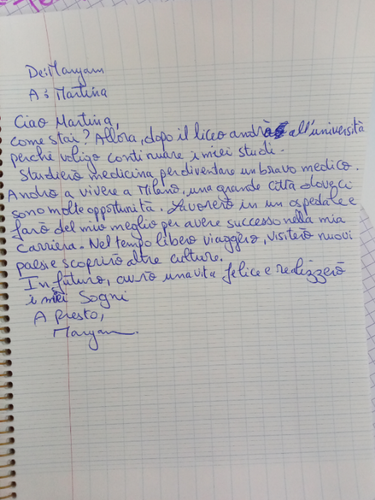 De: Maryam
A : Martina
Ciao Martina,
come stai? Allora, dopo il liceo andrò all'università
perché voligo continuare i miei studi.
Studierò medicina per diventare un bravo medico.
Andrò a vivere a Milano, una grande città dove ci
sono molte opportunità. Lavorerò in un ospedale e
farò del mio meglio per avere successo nella mia
carriera. Nel tempo libero viaggerò, visiterò nuovi
paesi e scoprirò altre culture.
In futuro, avrò una vita felice e realizzerò
i miei sogni
A presto,
Maryam